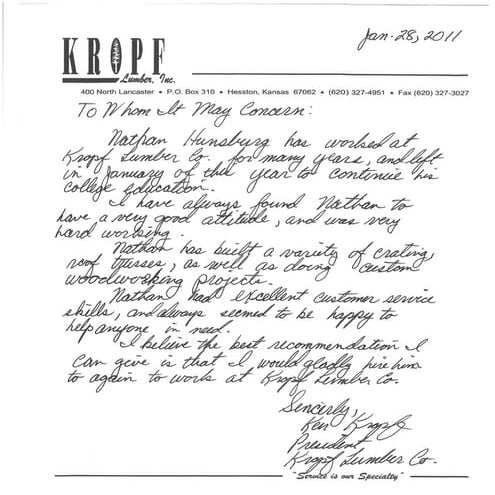 Jan. 28, 2011
KROPF
Lumber, Inc.
400 North Lancaster • P.O. Box 310 • Hesston, Kansas 67062 • (620) 327-4951 • Fax (620) 327-3027
To Whom It May Concern:
Nathan Hunsburg has worked at
Kropf Lumber Co. for many years, and left
in January of this year to continue his
college education.
I have always found Nathan to
have a very good attitude, and was very
hard working.
Nathan has built a variety of crating,
roof trusses, as well as doing custom
woodworking projects.
Nathan had excellent customer service
skills, and always seemed to be happy to
help anyone in need.
I believe the best recommendation I
can give is that I would gladly hire him
to again to work at Kropf Lumber Co.
Sincerly,
Ken Kropf
President
Kropf Lumber Co.
"Service is our Specialty"